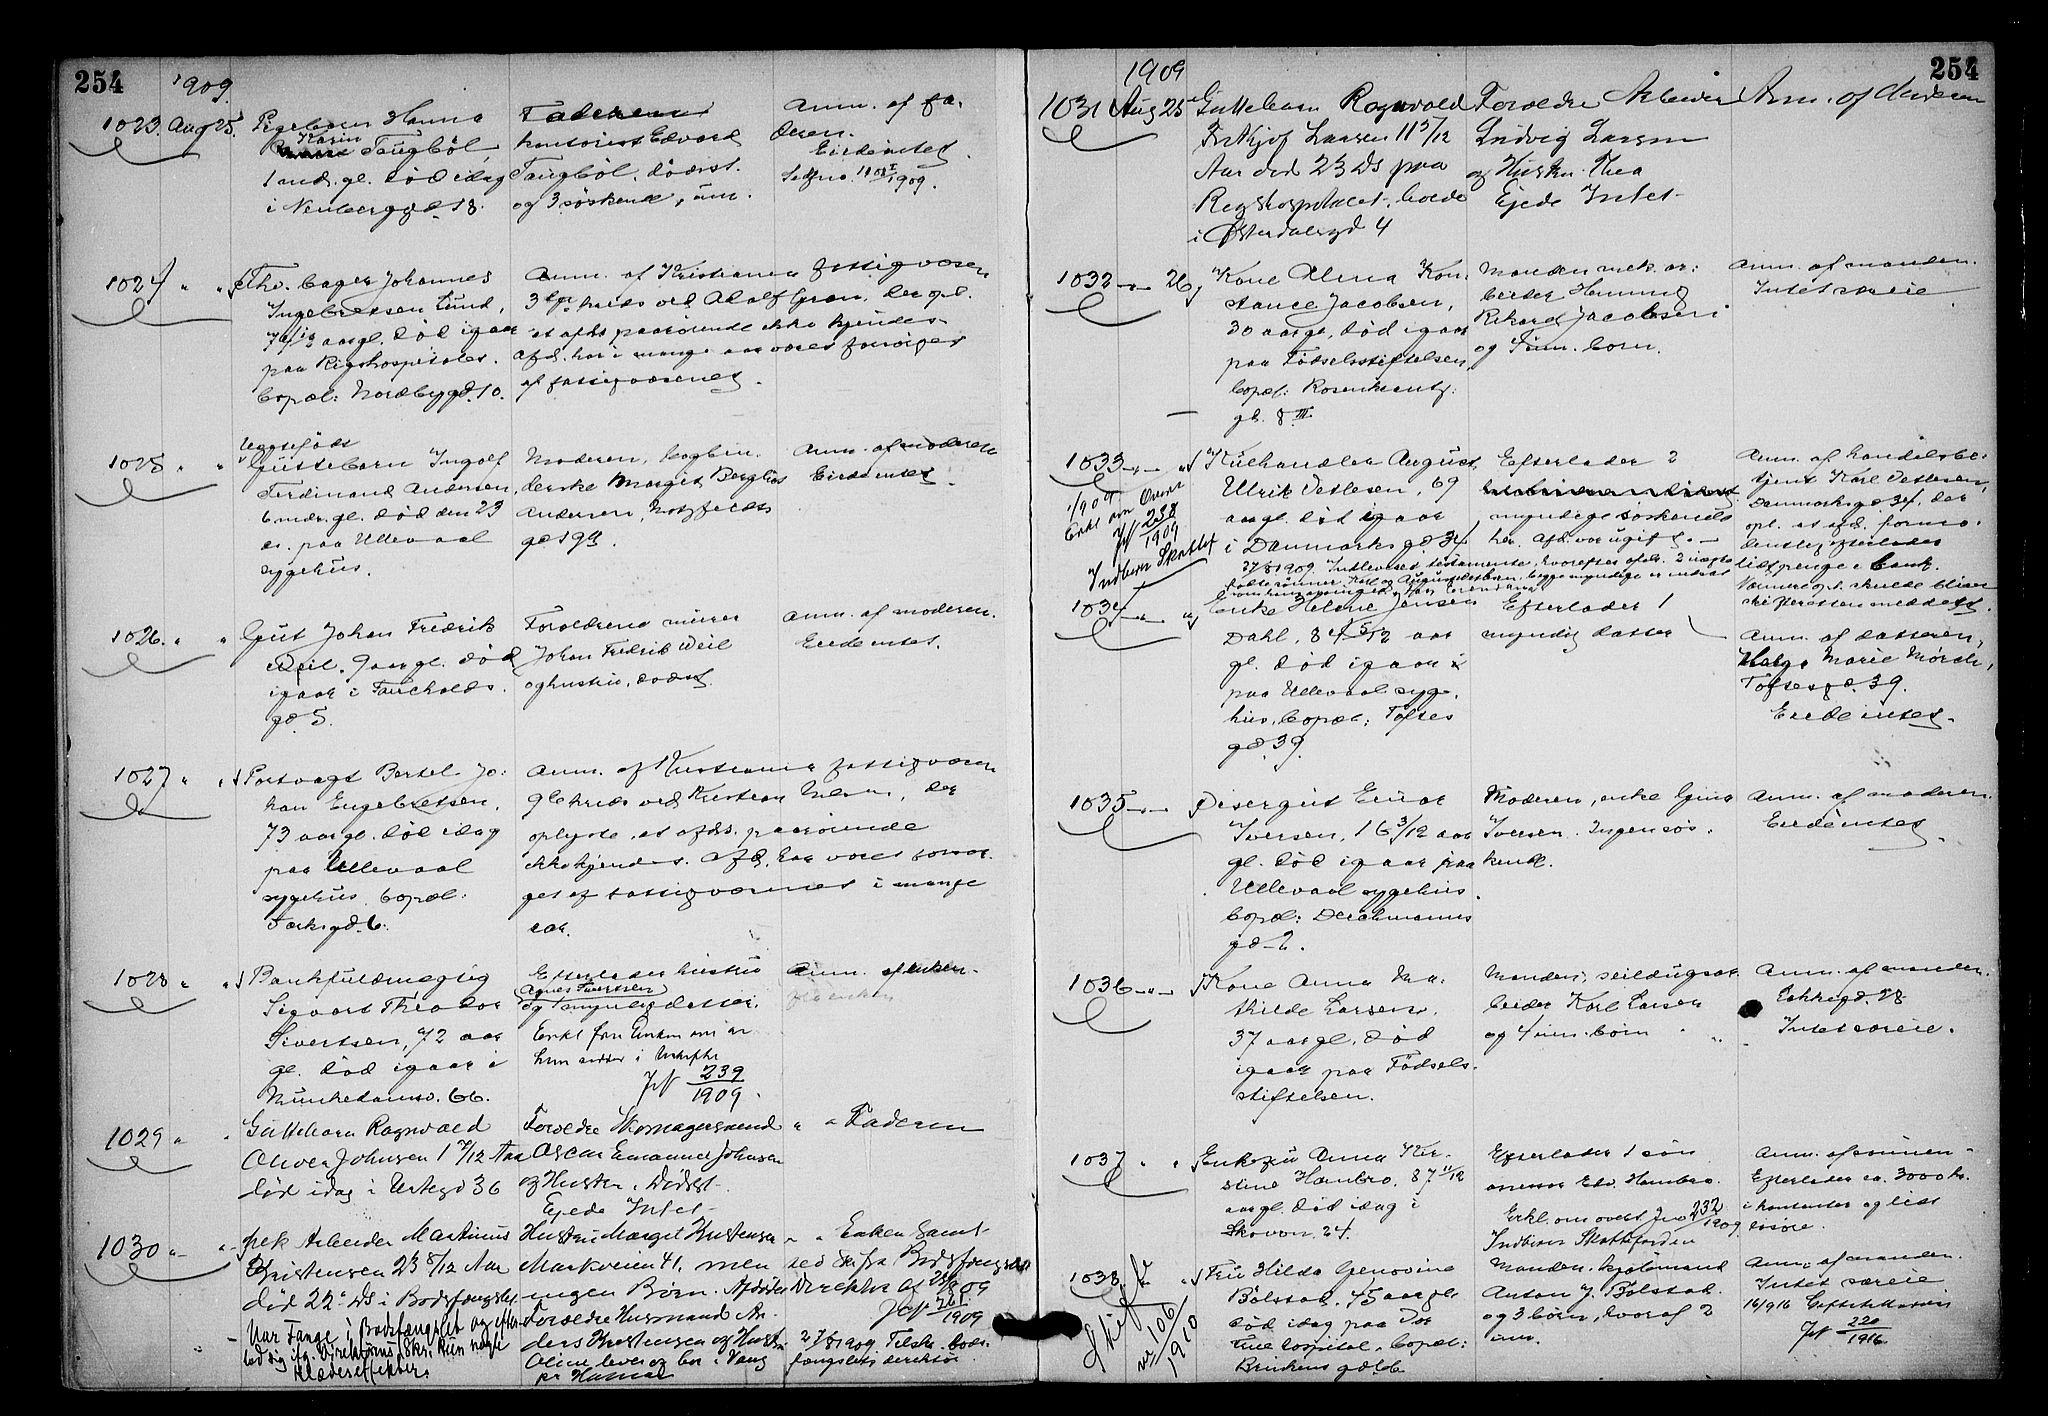 254
1909.
1023. Aug 25. Pigebarn Hanna
Karin Taugböl,
1 mdr. gl. död idag
i Neuberggd 18.
Faderen
kontorist Edvard
Taugböl, döDst.
og 3 söskende, um.
Anm. af fa-
deren.
Eiede intet.
1909.
1024 " " Fhv. bager Johannes
Ingebretsen Lund,
aargl. död igaar
paa Rigshospitalet.
bopæl: Nordbygd. 10.
Anm. af Kristiania fattigvæsen
3die kreds ved Adolf Gran, der opl.
at afds paarörende ikke kjendes.
Afd. har i mange aar været forsörget
af fattigvæsenet.
1025 " " Uægtefödt
Guttebarn Ingolf
Ferdinand Andersen,
6 mdr. gl. död den 23
ds. paa Ullevaal
sygehus.
Moderen, bogbin-
derske Margit Bergliot
Andersen, Motzfeldts
gd
Anm. af moderen
Eiede intet.
1026. " " Gut Johan Fredrik
Weil, 9 aar gl. död
igaar i Faucholds.
gd 5.
Forældrene murer
Johan Fredrik Weil
og hustru, dödst.
Anm. af moderen.
Eiede intet.
1027 " " Portvagt Bertel Jo-
han Engebretsen,
73 aargl. död idag
paa Ullevaal
sygehus. bopæl:
gd. 6.
Anm. af Kristiania fattigvæsen
9de kreds ved Kristian, der
oplyste, at afds. paarörende
ikke kjendes. Afd. har været forsör-
get af fattigvæsenet i mange
aar.
1028 " " Bankfuldmægtig
Sigvart Theodor
Sivertsen, 72 aar
gl. död igaar i
Munkedamsv. 66.
Efterlader hustru
Agnes Sivertsen
og 1 myndig datter.
Erkl fra Enken om at
hun sidder i Uskifte
JN 239
1909.
Anm. af enken.
1029 " " Guttebarn Ragnvald
Oliver Johnsen 1 7/12 Aar
död idag i Urtegd 36
Forældre Skomagersvend
Oscar Emanuel Johnsen
og Hustru, Dödst.
Ejede Intet
" " Faderen
1030 " " Arbeider Martinus
Kristensen 23 8/12 Aar
död 22 ds i Bodsfængslet
– Var Fange i Bodsfængslet og efter-
lod sig kun nogle
Klædeseffekter.
Hustru Margit Kristensen
Markveien 41, men
ingen Börn. Afdödes
Forældre Husmand An-
ders Kristensen og Hustru
Oline lever og bor i Vang
pr Hamar
" " Enken samt
sed Skr fra Bodsfængslets
Direktör af 25/8 09
JN 261
1909
27/8 1909. Tilskr. Bods-
fængslets direktör.
254
1909
1031 Aug 25 Guttebarn Ragnvald
Fritjof Larsen 11 5/12
Aar död 23 ds paa
Rigshospitalet, boede
i Østerdalsgd 4
Forældre Arbeider
Ludvig Larsen
og Hustru Thea
Ejede Intet
Anm. af Moderen
1032 " 26 Kone Alma Kon-
stance Jacobsen,
30 aargl. död igaar
paa Födselsstiftelsen
bopæl: Rosenkrantz-
gd. 8 III.
Manden mek. ar-
beider Henning
Rikard Jacobsen
og 5 um. börn.
Anm. af manden.
Intet særeie.
1033 " " Kulhandler August
Ulrik Vetlesen, 69
aargl. död igaar
i Danmarks gd 34.
1909
Erkl om Overt
JN 238
1909
Indberr Skattef
Efterlader 2
myndige söskende
her. Afd. var ugift.
27/8 1909. Indleveret testamente, hvorefter afds. 2 uægte
födte sönner, Karl og August Vetlesen, begge myndige er indsat
Anm. af handelsbe-
tjent Karl Vetlesen,
Danmarks gd. 34, der
opl. at afd. formo-
dentlig efterlader
lidt penge i bank.
Nærmere opl. skulde blive
skifteretten meddelt.
1034 " " Enke Helene Jensen
Dahl, 84 5/12 aar
gl. död igaar
paa Ullevaal syge-
hus, bopæl: Toftes
gd. 39.
Efterlader 1
myndig datter
Anm. af datteren,
Helga Marie Mörch,
Toftesgd. 39.
Eiede intet.
1035 " Visergut Einar
Iversen, 16 3/12 aar
gl. död igaar paa
Ullevaal sygehus.
bopæl: Deichmanns
gd 2.
Moderen, enke Gina
Iversen. Ingen sös-
kende.
Anm. af moderen.
Eiede intet.
1036 " " Kone Anna Ma-
thilde Larsen,
37 aargl. död
igaar paa Födsels-
stiftelsen.
Manden, seildugsar-
beider Karl Larsen
og 4 um. börn
Anm. af manden.
28
Intet særeie.
1037 " " Enkefru Anna Kir-
stine Hambro, 87 11/12
aargl. död idag i
Skovvn. 24.
Efterlader 1 sön
assessor Edv. Hambro.
Erkl. om overt JN 232
1909
Indberr Skattefgden
Anm. af sönnen.
Efterlader ca. 3000 kr.
i kontanter og lidt
lösöre.
1038 " " Fru Hilda Genovina
Bölstad, 45 aar gl.
död idag paa Vor
Frue hospital, bopæl:
Brinkens gd
Skifte
nr 106
1910
Manden, kjöbmand
Anton J. Bölstad
og 3 börn, hvoraf 2
um.
Anm. af manden.
Intet særeie
16/9 16
JN 220
1916